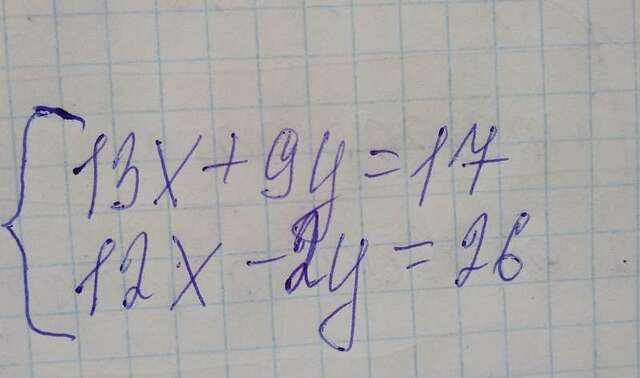 13x+9y=17
12x-2y=26